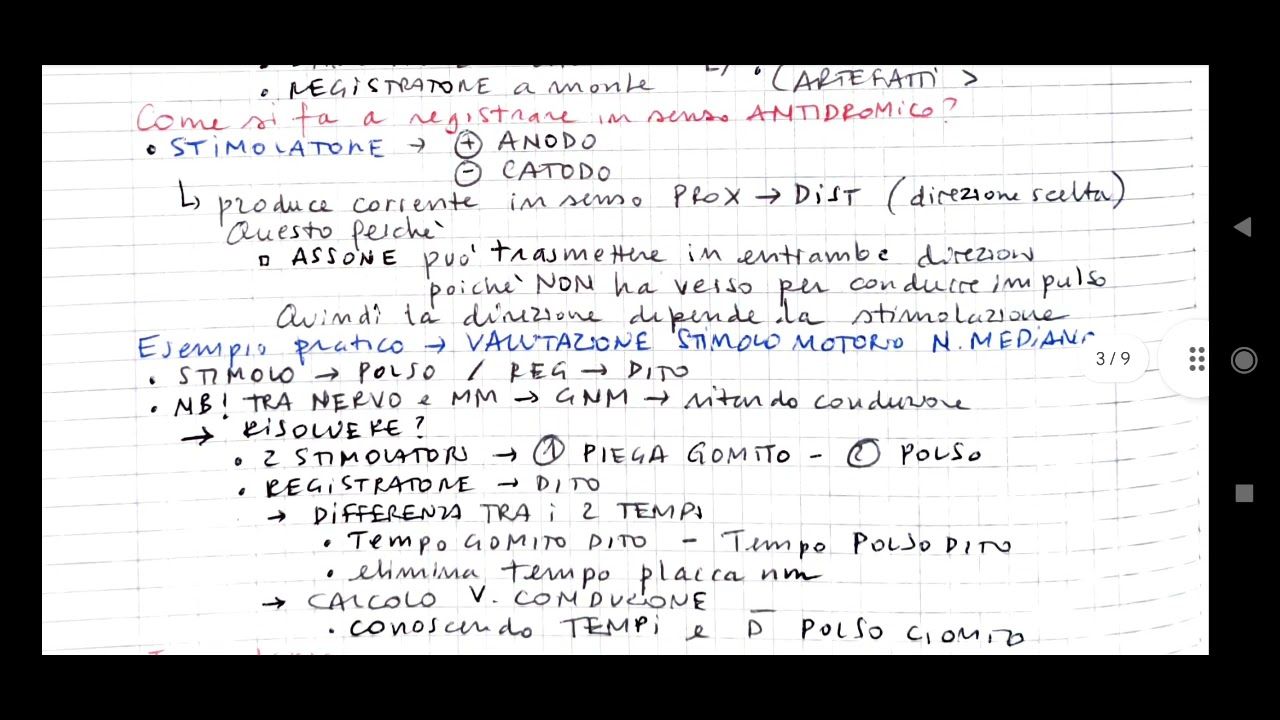 • REGISTRATORE a monte (ARTEFATTI >
Come si fa a registrare in senso ANTIDROMICO?
• STIMOLATORE → ⊕ ANODO
⊖ CATODO
↳ produce corrente in senso PROX → DIST (direzione scelta)
Questo perchè
▫ ASSONE può trasmettere in entrambe direzioni
poichè NON ha verso per condurre impulso
Quindi la direzione dipende da stimolazione
Esempio pratico → VALUTAZIONE STIMOLO MOTORIO N. MEDIANO
• STIMOLO → POLSO / REG → DITO
• NB! TRA NERVO e MM → GNM → ritardo conduzione
→ RISOLVERE?
• 2 STIMOLATORI → ① PIEGA GOMITO - ② POLSO
• REGISTRATORE → DITO
→ DIFFERENZA TRA i 2 TEMPI
• Tempo GOMITO DITO - Tempo POLSO DITO
• elimina tempo placca nm
→ CALCOLO V. CONDUZIONE
• CONOSCENDO TEMPI e D̅ POLSO GOMITO
3 / 9